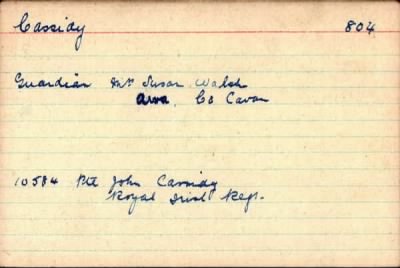 Cassidy 804
Guardian Mrs Susan Walsh
Arva, Co Cavan
10584 Pte John Cassidy
Royal Irish Regt.